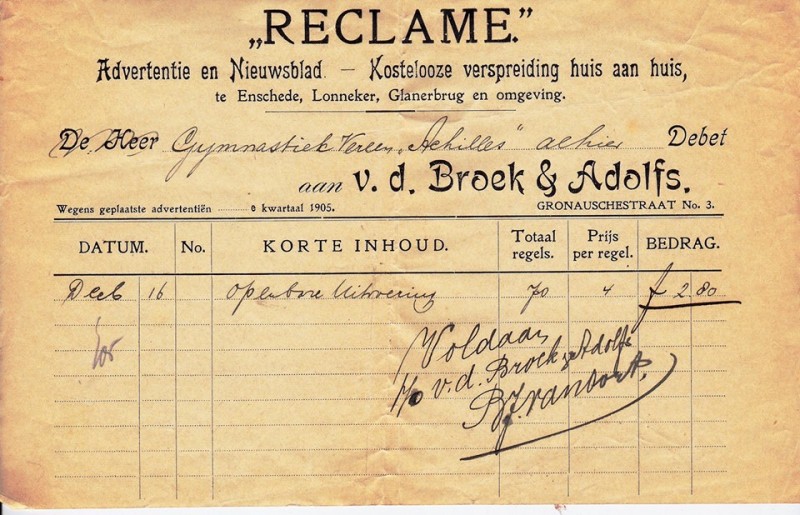 „RECLAME."
Advertentie en Nieuwsblad. — Kostelooze verspreiding huis aan huis,
te Enschede, Lonneker, Glanerbrug en omgeving.
De Heer Gymnastiek Vereen. „Achilles" alhier Debet
aan v. d. Broek & Adolfs.
Wegens geplaatste advertentiën e kwartaal 1905. GRONAUSCHESTRAAT No. 3.
DATUM. No. KORTE INHOUD. Totaal regels. Prijs per regel. BEDRAG.
Decb 16 Openbare Uitvoering 70 4 f 2.80
Voldaan
p/o v. d. Broek & Adolfs